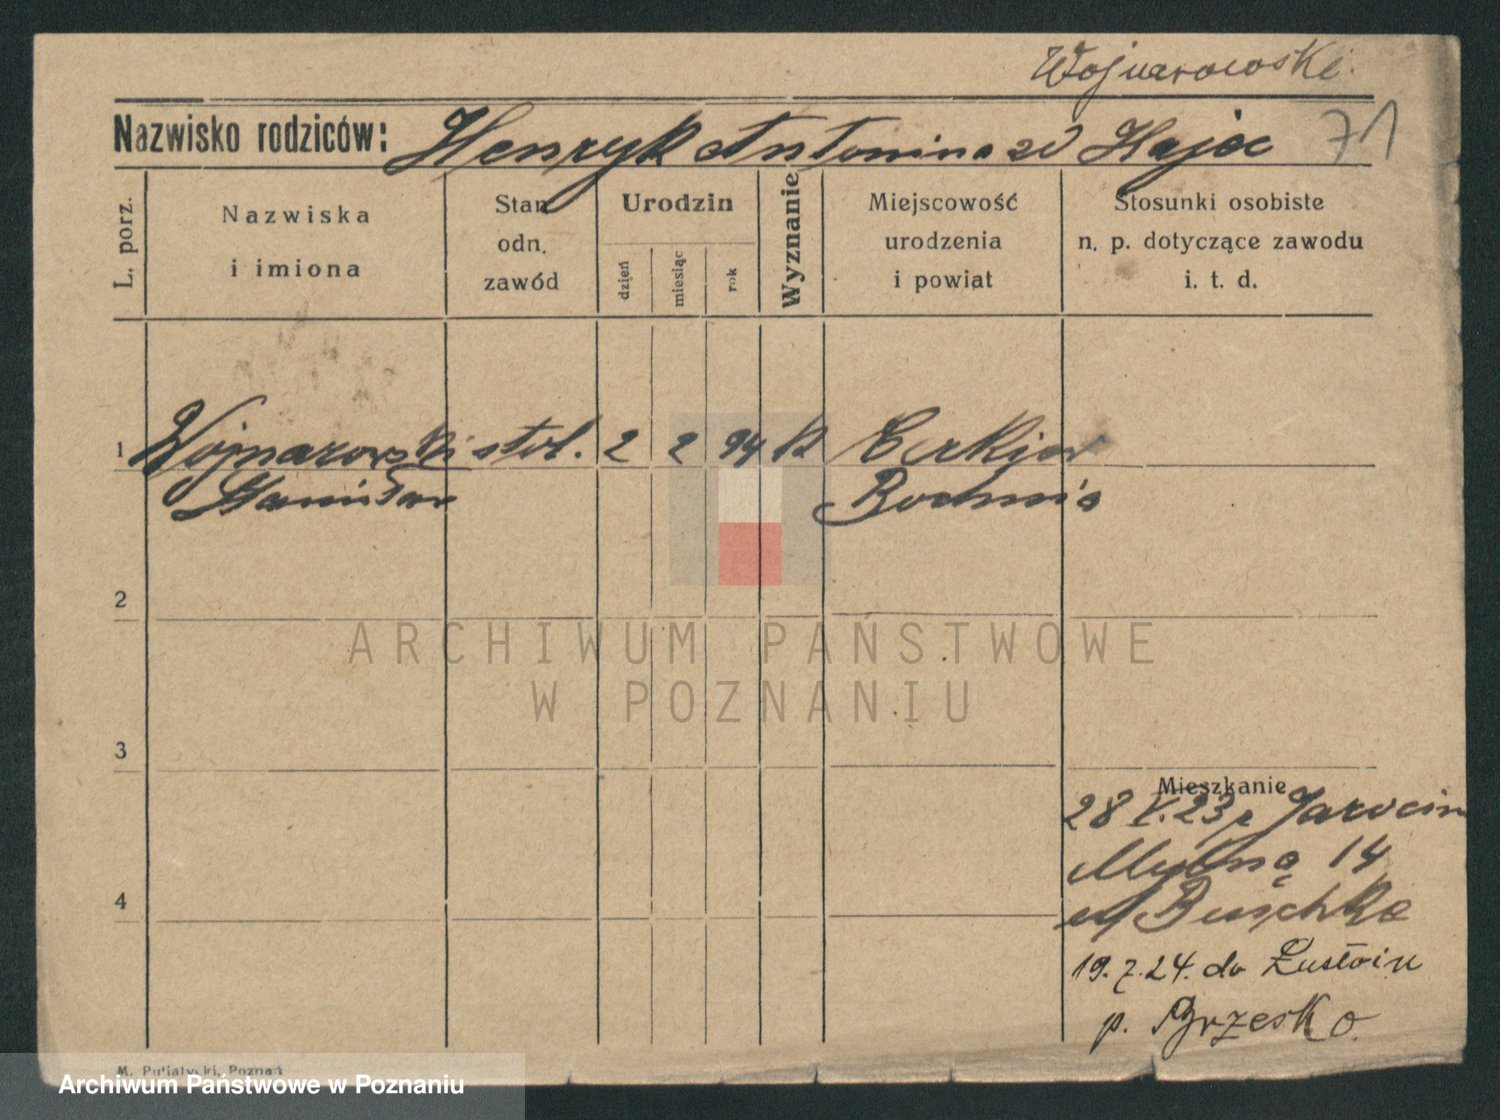 Wojnarowski.
Nazwisko rodziców: Henryk Antonina zd Hajec 71
L. porz.
Nazwiska
i imiona
Stan
odn.
zawód
Urodzin
dzień
miesiąc
rok
Wyznanie
Miejscowość
urodzenia
i powiat
Stosunki osobiste
n. p. dotyczące zawodu
i. t. d.
1 Wojnarowski stol. 2 2 94 k
Stanisław Bochnia
2
3
4
Mieszkanie
28 V. 23 z Jarocin
Mylną 14
Buschke
19. 7. 24. do
p. Brzesko.
M. Putiatycki, Poznań
ARCHIWUM PAŃSTWOWE
W POZNANIU
Archiwum Państwowe w Poznaniu